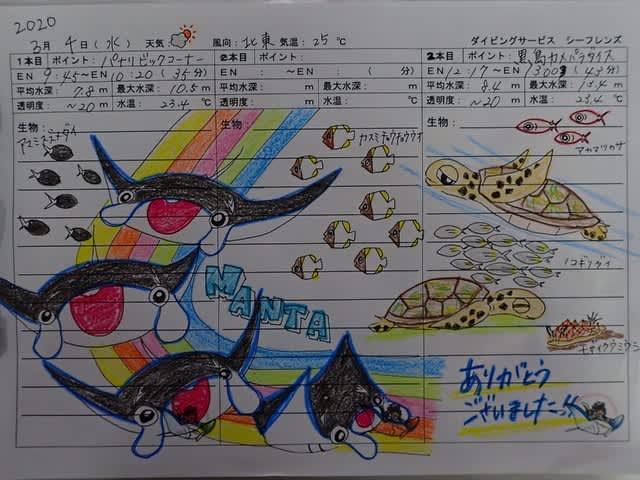 2020
3月 4日(水) 天気 風向:北東 気温:25℃ ダイビングサービス シーフレンズ
1本目 ポイント:パナリビックコーナー
EN 9:45〜EN 10:20 (35分)
平均水深: 7.8 m 最大水深: 10.5 m
透明度: 〜20 m 水温: 23.4 ℃
生物:
アマミスズメダイ
ポイント:
EN : 〜EN : ( 分)
平均水深: m 最大水深: m
透明度: m 水温: ℃
生物:
カスミチョウチョウウオ
2本目 ポイント:黒島カメパラダイス
EN 12:17〜EN (43分)
平均水深: 8.4 m 最大水深: m
透明度: 〜20 m 水温: 23.4 ℃
生物:
アカマツカサ
ノコギリダイ
MANTA
ありがとう
ございました!!